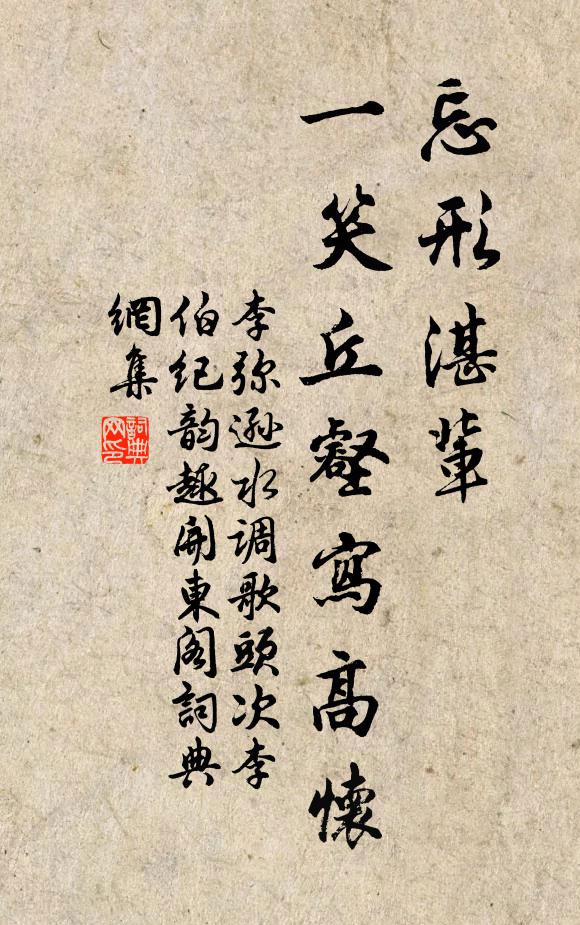 忘形湛輩
一笑丘壑寫高懷
李弥遜水调歌頭次李
伯纪韵趣開東閣詞典
網集
詞典
网印